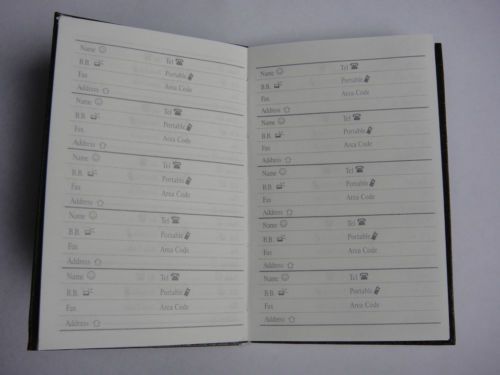 Name Tel
B.B. Portable
Fax Area Code
Address
Name Tel
B.B. Portable
Fax Area Code
Address
Name Tel
B.B. Portable
Fax Area Code
Address
Name Tel
B.B. Portable
Fax Area Code
Address
Name Tel
B.B. Portable
Fax Area Code
Address
Name Tel
B.B. Portable
Fax Area Code
Address
Name Tel
B.B. Portable
Fax Area Code
Address
Name Tel
B.B. Portable
Fax Area Code
Address
Name Tel
B.B. Portable
Fax Area Code
Address
Name Tel
B.B. Portable
Fax Area Code
Address